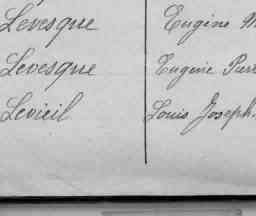 Levesque Eugène M
Levesque Eugène Pierr
Levieil Louis Joseph.